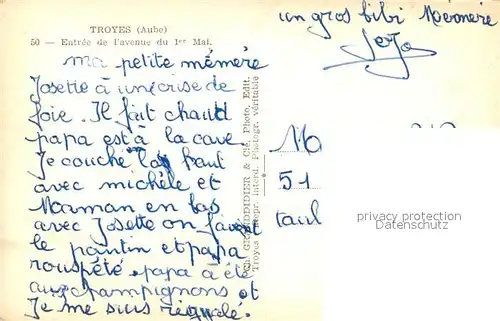 TROYES (Aube)
50 — Entrée de l'avenue du 1er Mai.
un gros bibi Memère
Jojo
ma petite mémère
Josette à une crise de
foie. Il fait chaud
papa est à la cave.
Je couche là haut
avec michèle et
Maman en bas
avec Josette on faient
le pantin et papa
rouspété. papa à été
aux champignons et
Je me suis régualé.
CH. GRANDIDIER & Cie, Photo, Edit.
Troyes Repr. interd. Photogr. véritable
51
privacy protection